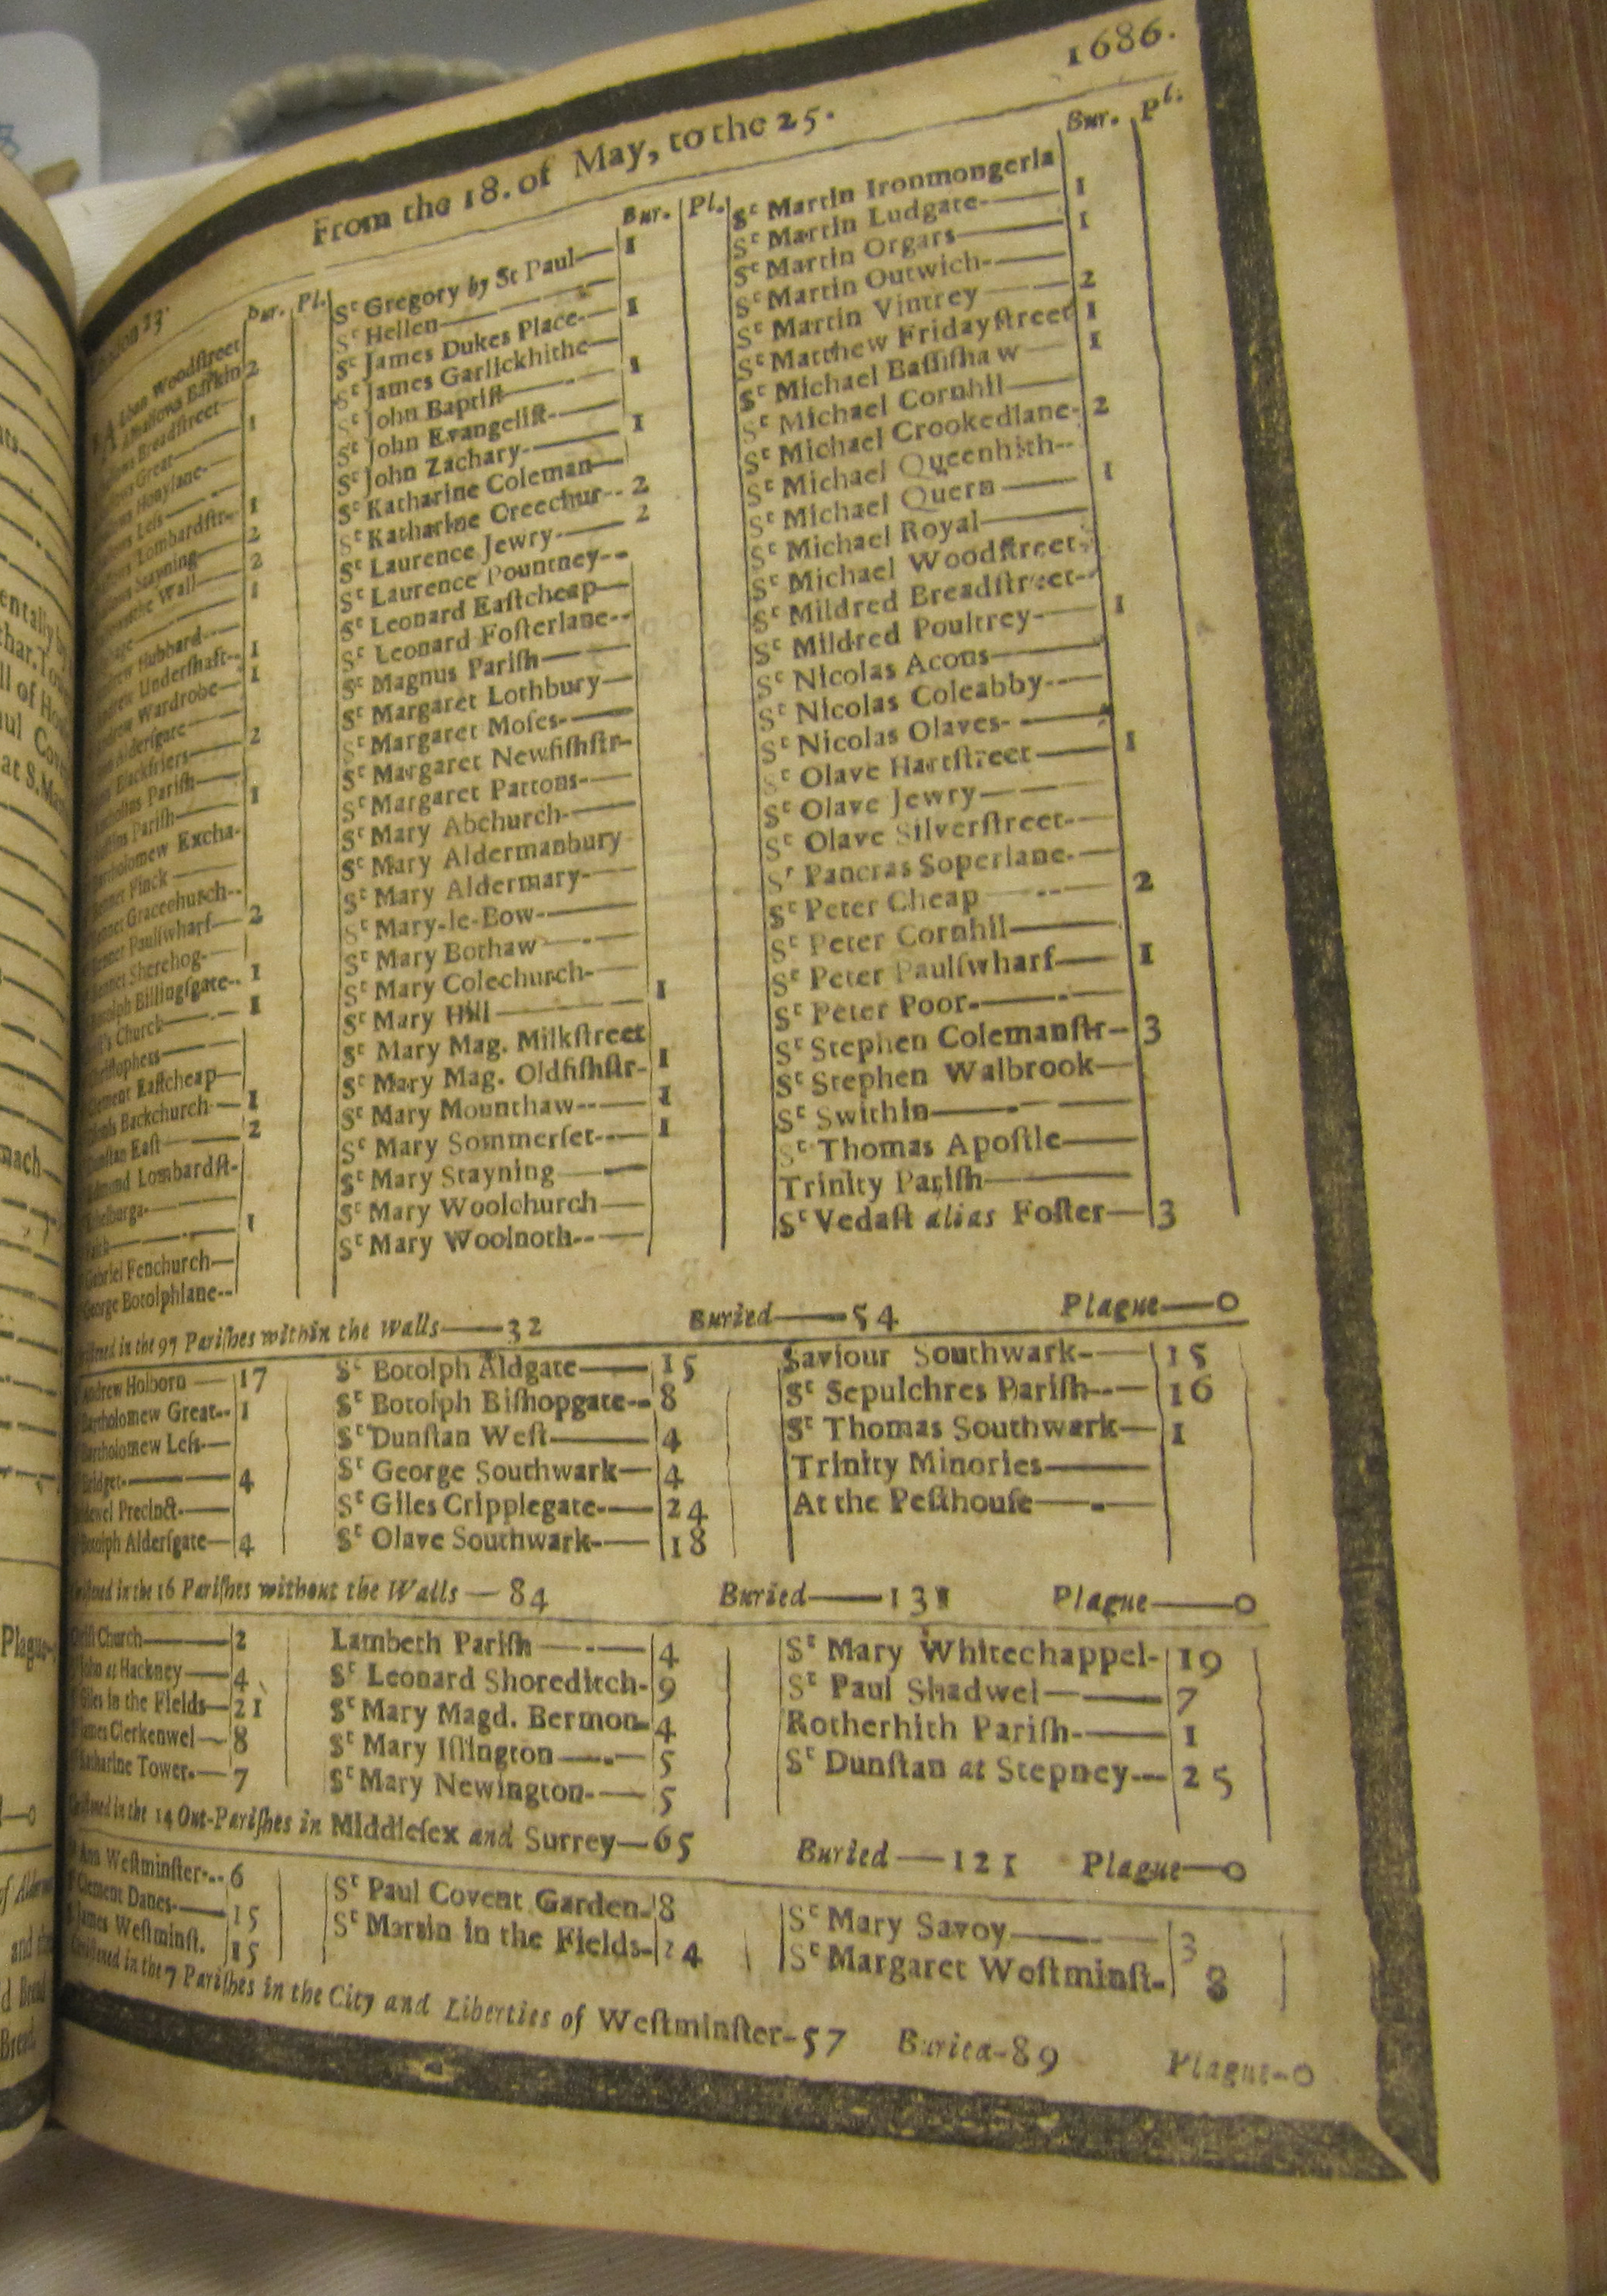 1686.
From the 18. of May, to the 25.
Bur. Pl.
Woodſtreet
Barkin 2
Breadſtreet
Great 1
Honylane
Leſs
Lombardſtr 1
Stayning 2
the Wall 2
1
Hubbard
Underſhaft 1
Wardrobe 1
Alderſgate
Blackfriers 2
Pariſh
Pariſh 1
Bartholomew Excha-
Bennet Finck
Bennet Gracechurch
Bennet Paulſwharf 2
Bennet Sherehog
Botolph Billingſgate 1
Church 1
Chriſtophers
Clement Eaſtcheap
Backchurch 1
Dunſtan Eaſt 2
Edmond Lombardſt-
Ethelburga
Faith 1
Gabriel Fenchurch
George Botolphlane
Bur. Pl.
Sᵗ Gregory by St Paul 1
Sᵗ Hellen
Sᵗ James Dukes Place 1
Sᵗ James Garlickhithe
Sᵗ John Baptiſt 1
Sᵗ John Evangeliſt
Sᵗ John Zachary 1
Sᵗ Katharine Coleman
Sᵗ Katharine Creechur 2
Sᵗ Laurence Jewry 2
Sᵗ Laurence Pountney
Sᵗ Leonard Eaſtcheap
Sᵗ Leonard Foſterlane
Sᵗ Magnus Pariſh
Sᵗ Margaret Lothbury
Sᵗ Margaret Moſes
Sᵗ Margaret Newfiſhſtr
Sᵗ Margaret Pattons
Sᵗ Mary Abchurch
Sᵗ Mary Aldermanbury
Sᵗ Mary Aldermary
Sᵗ Mary-le-Bow
Sᵗ Mary Bothaw
Sᵗ Mary Colechurch
Sᵗ Mary Hill 1
Sᵗ Mary Mag. Milkſtreet
Sᵗ Mary Mag. Oldfiſhſtr 1
Sᵗ Mary Mounthaw 1
Sᵗ Mary Sommerſet 1
Sᵗ Mary Stayning
Sᵗ Mary Woolchurch
Sᵗ Mary Woolnoth
Bur. Pl.
Sᵗ Martin Ironmongerla
Sᵗ Martin Ludgate 1
Sᵗ Martin Orgars 1
Sᵗ Martin Outwich
Sᵗ Martin Vintrey 2
Sᵗ Matthew Fridayſtreet 1
Sᵗ Michael Baſſiſhaw 1
Sᵗ Michael Cornhil
Sᵗ Michael Crookedlane 2
Sᵗ Michael Queenhith
Sᵗ Michael Quern 1
Sᵗ Michael Royal
Sᵗ Michael Woodſtreet
Sᵗ Mildred Breadſtreet
Sᵗ Mildred Poultrey 1
Sᵗ Nicolas Acons
Sᵗ Nicolas Coleabby
Sᵗ Nicolas Olaves
Sᵗ Olave Hartſtreet 1
Sᵗ Olave Jewry
Sᵗ Olave Silverſtreet
Sᵗ Pancras Soperlane
Sᵗ Peter Cheap 2
Sᵗ Peter Cornhil
Sᵗ Peter Paulſwharf 1
Sᵗ Peter Poor
Sᵗ Stephen Colemanſtr 3
Sᵗ Stephen Walbrook
Sᵗ Swithin
Sᵗ Thomas Apoſtle
Trinity Pariſh
Sᵗ Vedaſt alias Foſter 3
in the 97 Pariſhes within the Walls 32 Buried 54 Plague 0
Andrew Holborn 17
Bartholomew Great 1
Bartholomew Leſs
Bridget 4
Precinct
Botolph Alderſgate 4
Sᵗ Botolph Aldgate 15
Sᵗ Botolph Biſhopgate 8
Sᵗ Dunſtan Weſt 4
Sᵗ George Southwark 4
Sᵗ Giles Cripplegate 24
Sᵗ Olave Southwark 18
Saviour Southwark 15
Sᵗ Sepulchres Pariſh 16
Sᵗ Thomas Southwark 1
Trinity Minories
At the Peſthouſe
in the 16 Pariſhes without the Walls 84 Buried 131 Plague 0
Church 2
John at Hackney 4
Giles in the Fields 21
James Clerkenwel 8
Katharine Tower 7
Lambeth Pariſh 4
Sᵗ Leonard Shoreditch 9
Sᵗ Mary Magd. Bermon 4
Sᵗ Mary Iſlington 5
Sᵗ Mary Newington 5
Sᵗ Mary Whitechappel 19
Sᵗ Paul Shadwel 7
Rotherhith Pariſh 1
Sᵗ Dunſtan at Stepney 25
in the 14 Out-Pariſhes in Middleſex and Surrey 65 Buried 121 Plague 0
Ann Weſtminſter 6
Clement Danes 15
James Weſtminſt. 15
Sᵗ Paul Covent Garden 8
Sᵗ Martin in the Fields 24
Sᵗ Mary Savoy 3
Sᵗ Margaret Weſtminſt 8
in the 7 Pariſhes in the City and Liberties of Weſtminſter 57 Buried 89 Plague 0